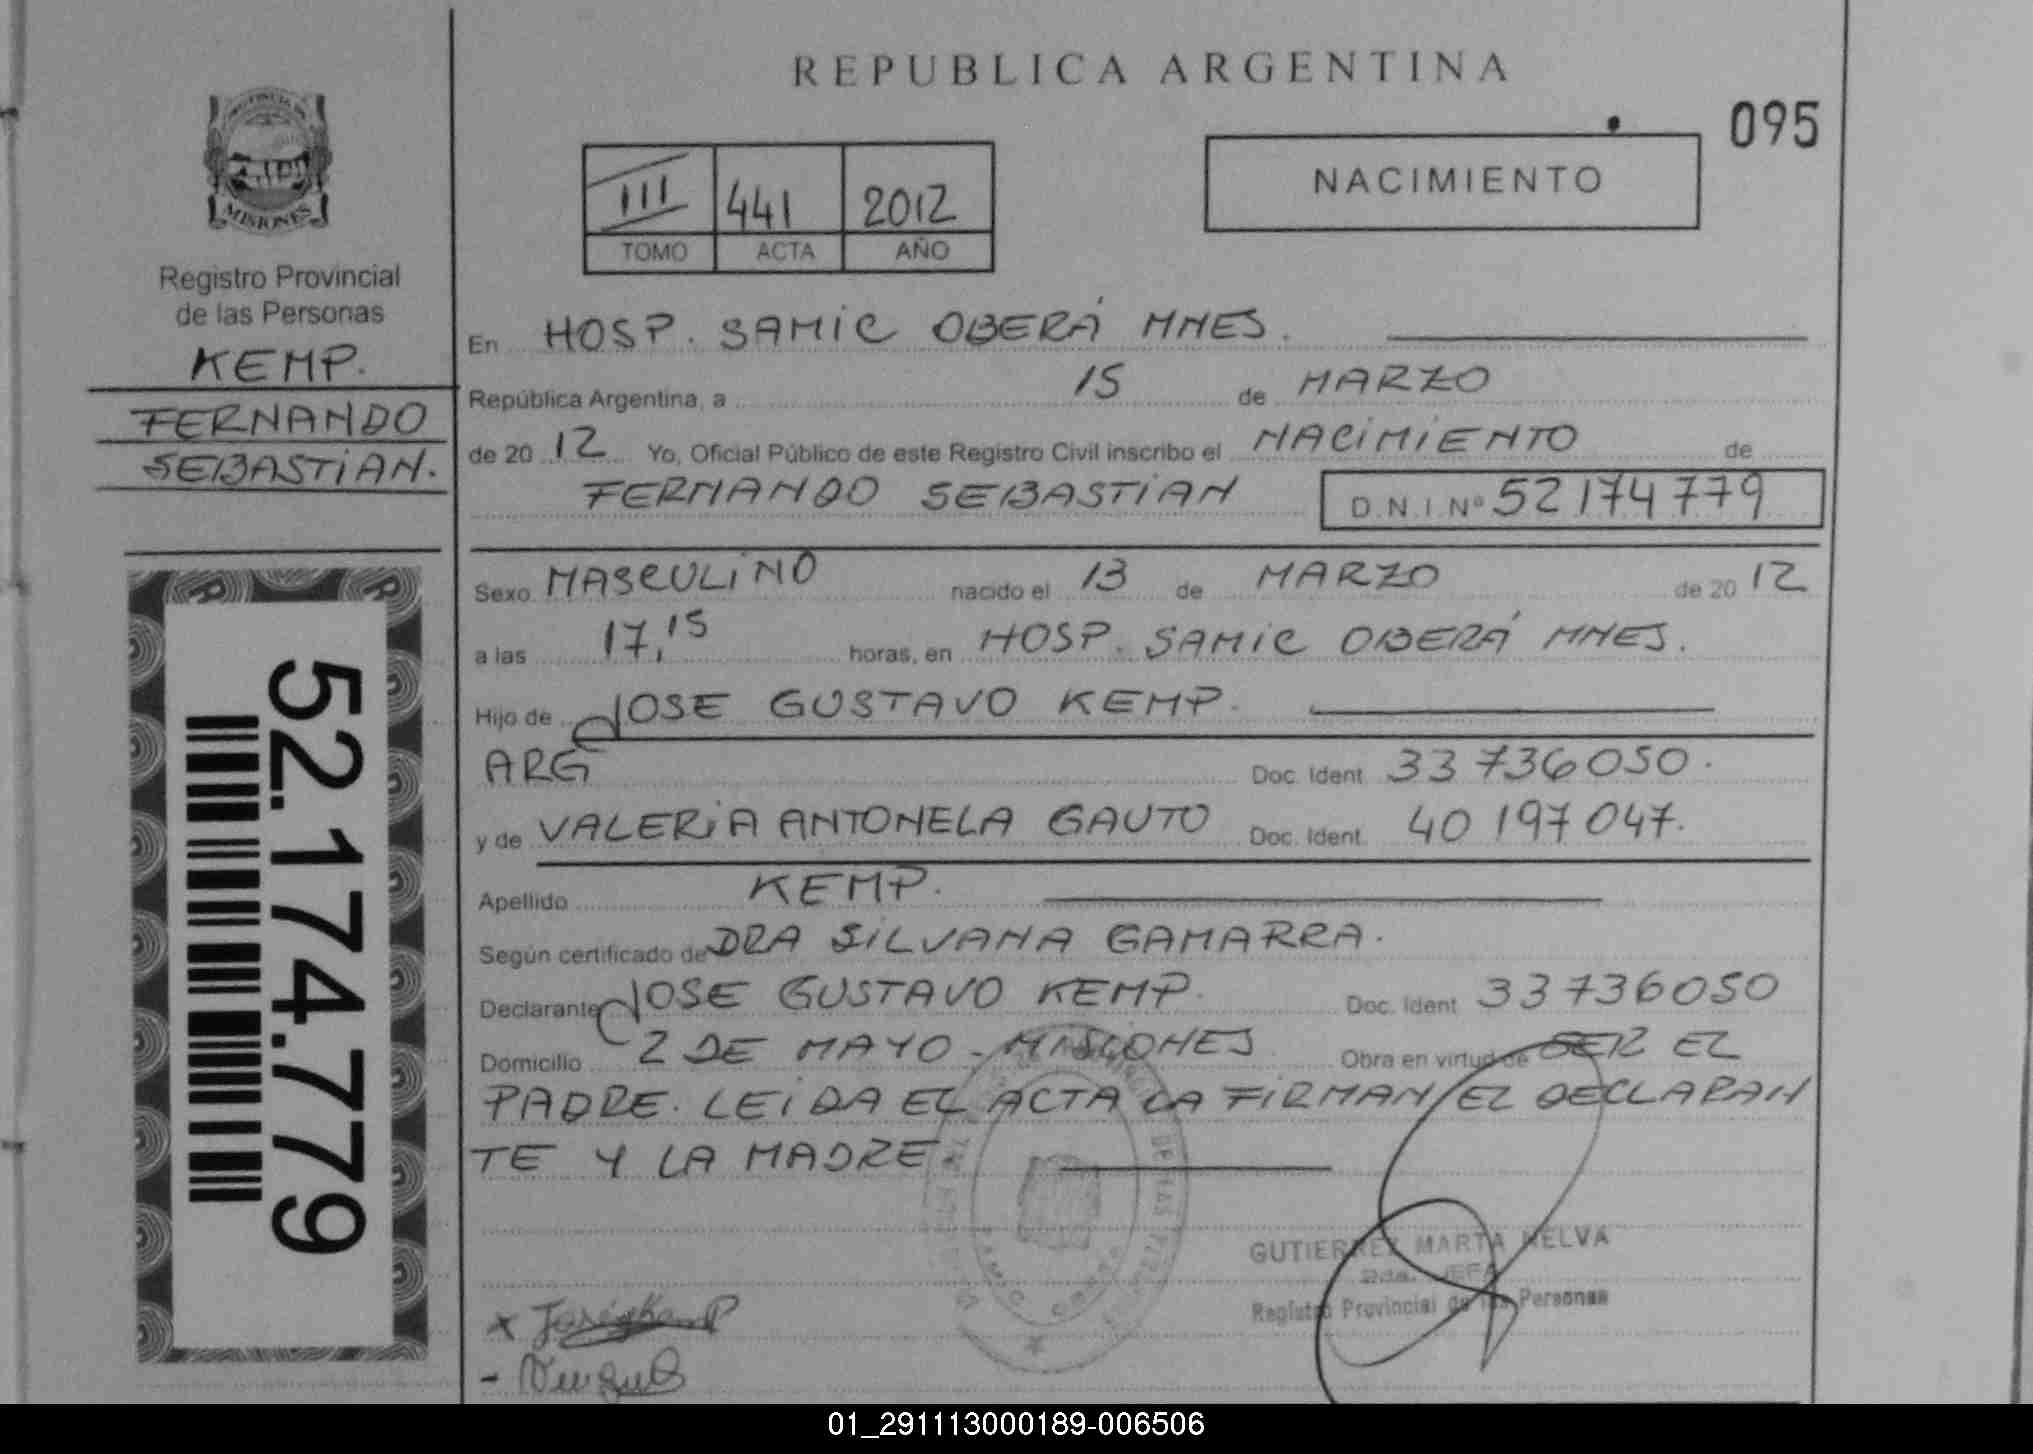 REPUBLICA ARGENTINA
095
NACIMIENTO
III 441 2012
TOMO ACTA AÑO
MISIONES
Registro Provincial
de las Personas
KEMP.
FERNANDO
SEBASTIAN.
52.174.779
En HOSP. SAMIC OBERÁ MNES.
República Argentina, a 15 de MARZO
de 20 12 Yo, Oficial Público de este Registro Civil inscribo el NACIMIENTO de
FERNANDO SEBASTIAN D.N.I. Nº 52174779
Sexo MASCULINO nacido el 13 de MARZO de 20 12
a las 17,15 horas, en HOSP. SAMIC OBERÁ MNES.
Hijo de JOSE GUSTAVO KEMP.
ARG Doc. Ident. 33736050.
y de VALERIA ANTONELA GAUTO Doc. Ident. 40197047.
Apellido KEMP.
Según certificado de DRA SILVANA GAMARRA.
Declarante JOSE GUSTAVO KEMP. Doc. Ident 33736050
Domicilio 2 DE MAYO - MISIONES Obra en virtud de SER EL
PADRE. LEIDA EL ACTA LA FIRMAN EL DECLARAN
TE Y LA MADRE.
GUTIERREZ MARTA NELVA
2da. JEFA
Registro Provincial de las Personas
01_291113000189-006506